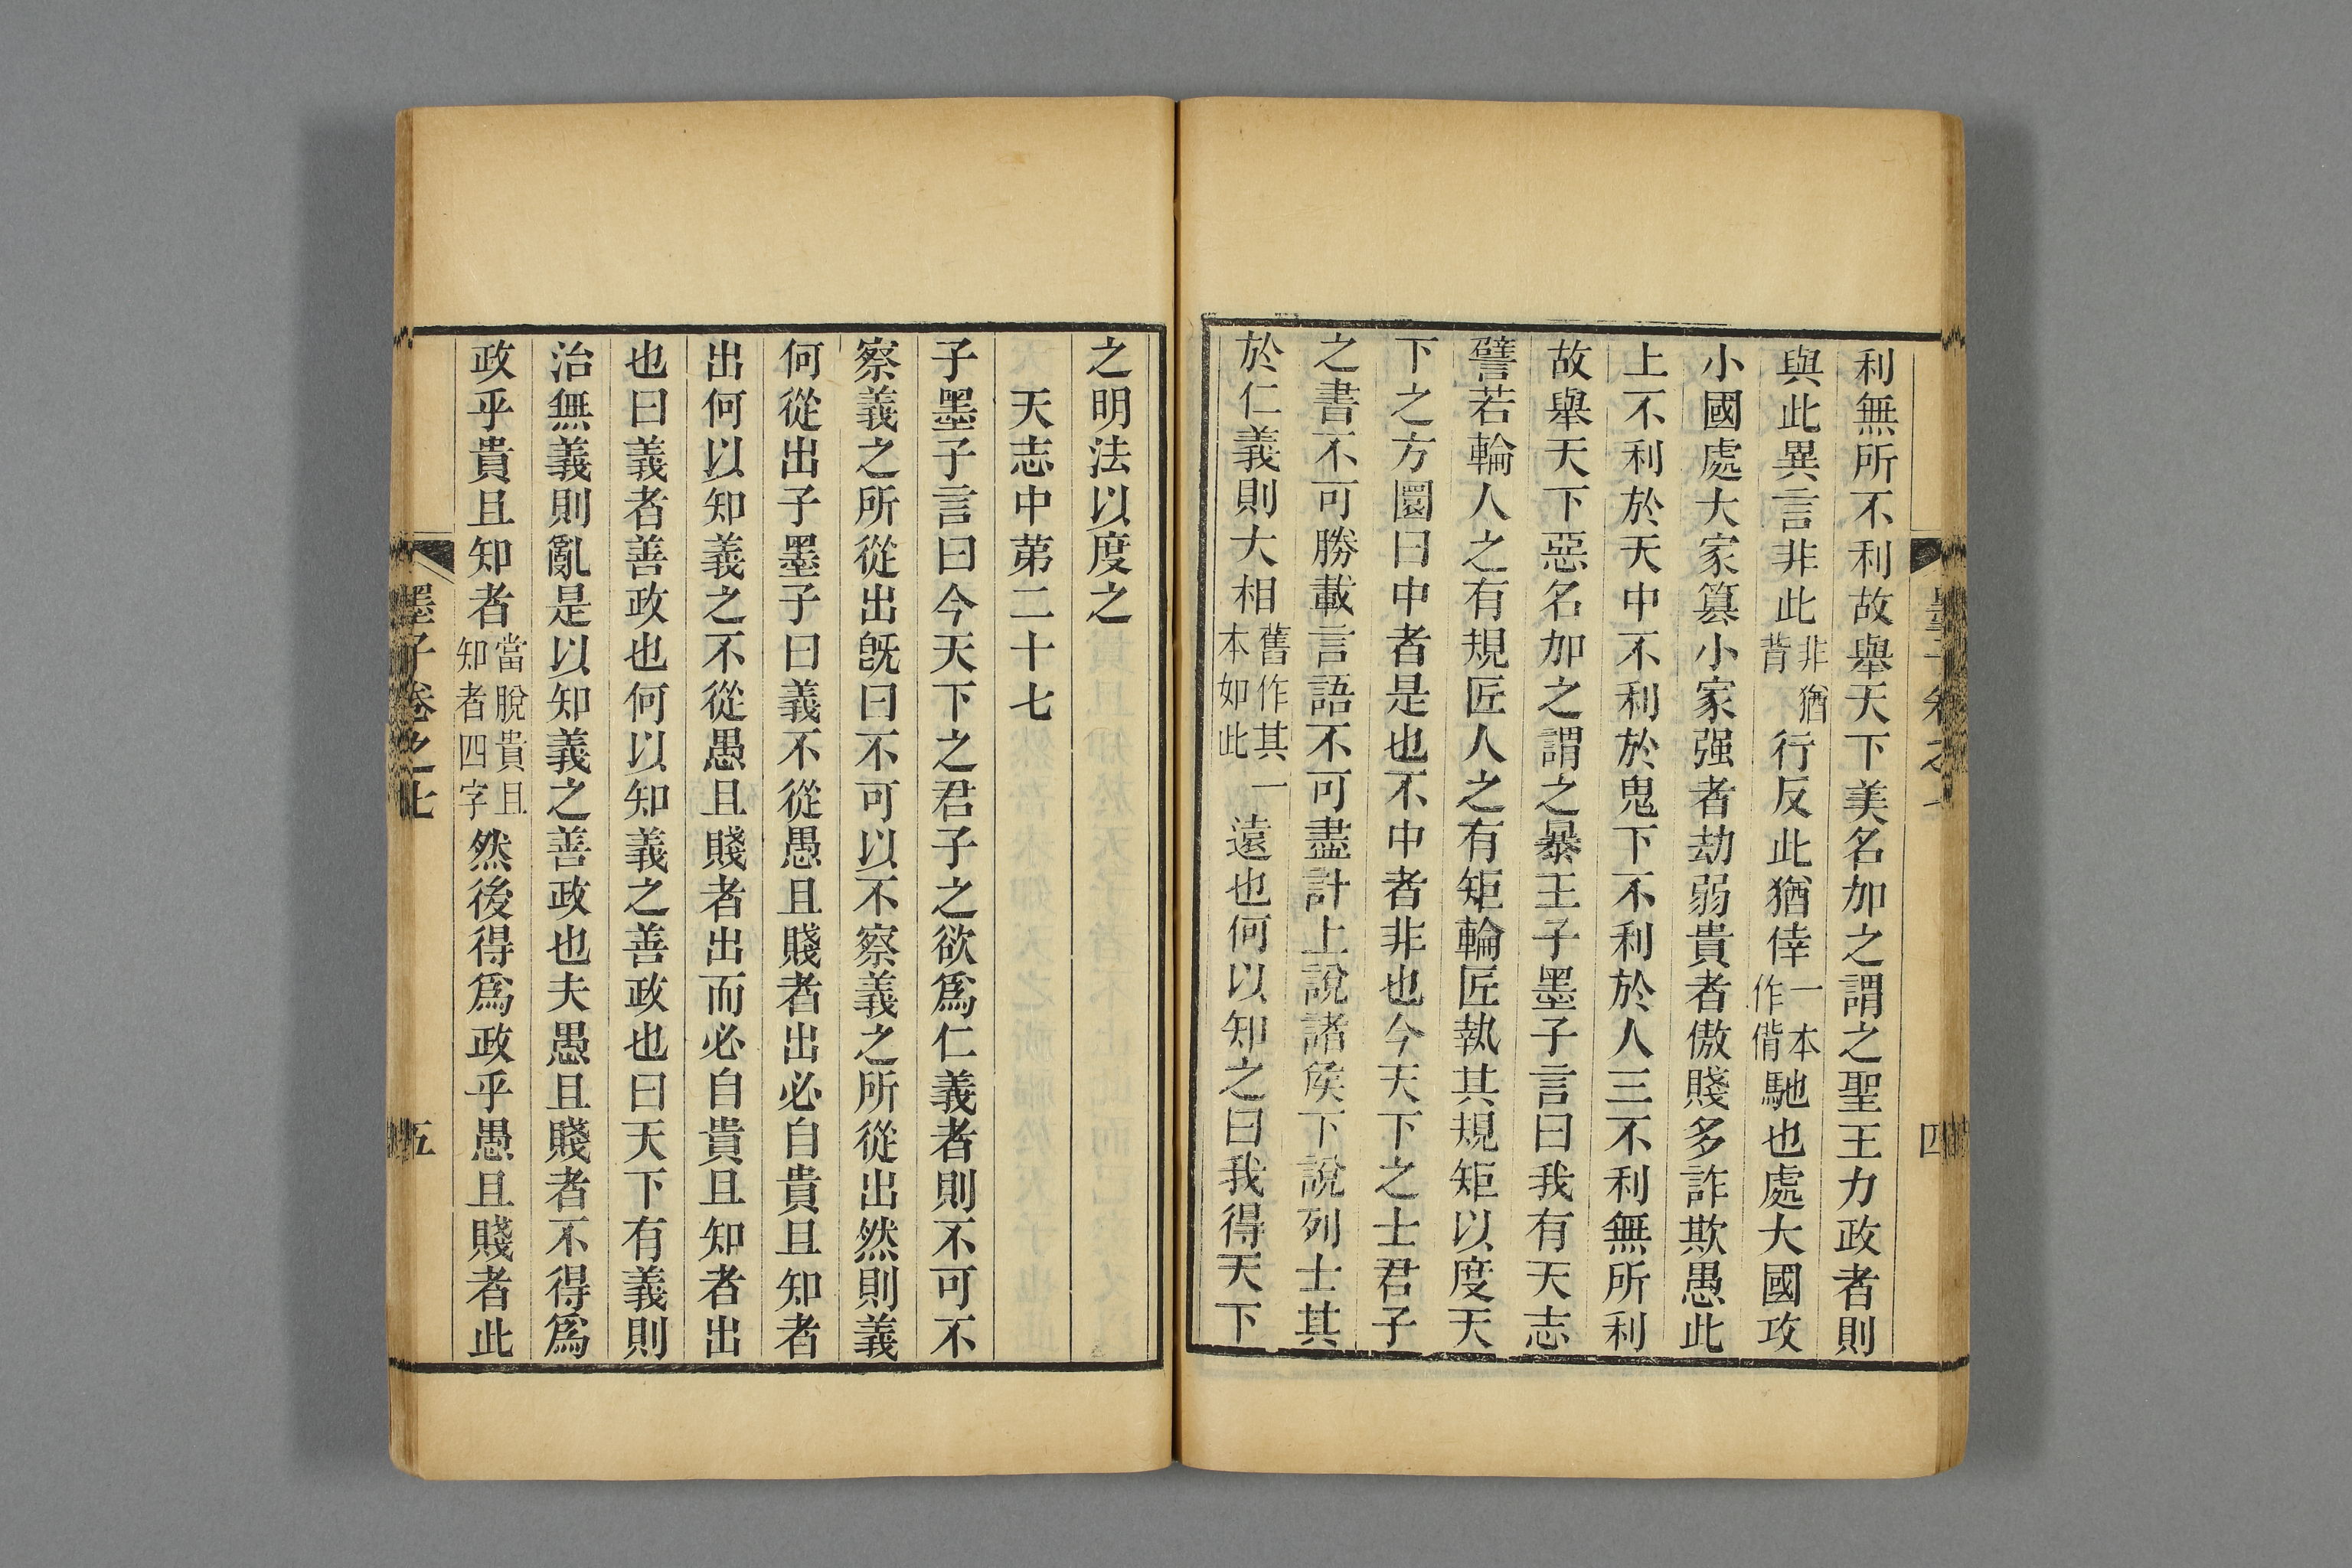 利無所不利故舉天下美名加之謂之聖王力政者則
與此異言非此非猶背行反此猶倖一本作偝馳也處大國攻
小國處大家篡小家强者劫弱貴者傲賤多詐欺愚此
上不利於天中不利於鬼下不利於人三不利無所利
故舉天下惡名加之謂之暴王子墨子言曰我有天志
譬若輪人之有規匠人之有矩輪匠執其規矩以度天
下之方圜曰中者是也不中者非也今天下之士君子
之書不可勝載言語不可盡計上說諸侯下說列士其
於仁義則大相舊作其一本如此遠也何以知之曰我得天下
之明法以度之
天志中第二十七
子墨子言曰今天下之君子之欲爲仁義者則不可不
察義之所從出旣曰不可以不察義之所從出然則義
何從出子墨子曰義不從愚且賤者出必自貴且知者
出何以知義之不從愚且賤者出而必自貴且知者出
也曰義者善政也何以知義之善政也曰天下有義則
治無義則亂是以知義之善政也夫愚且賤者不得爲
政乎貴且知者當脫貴且知者四字然後得爲政乎愚且賤者此
墨子卷之七
五